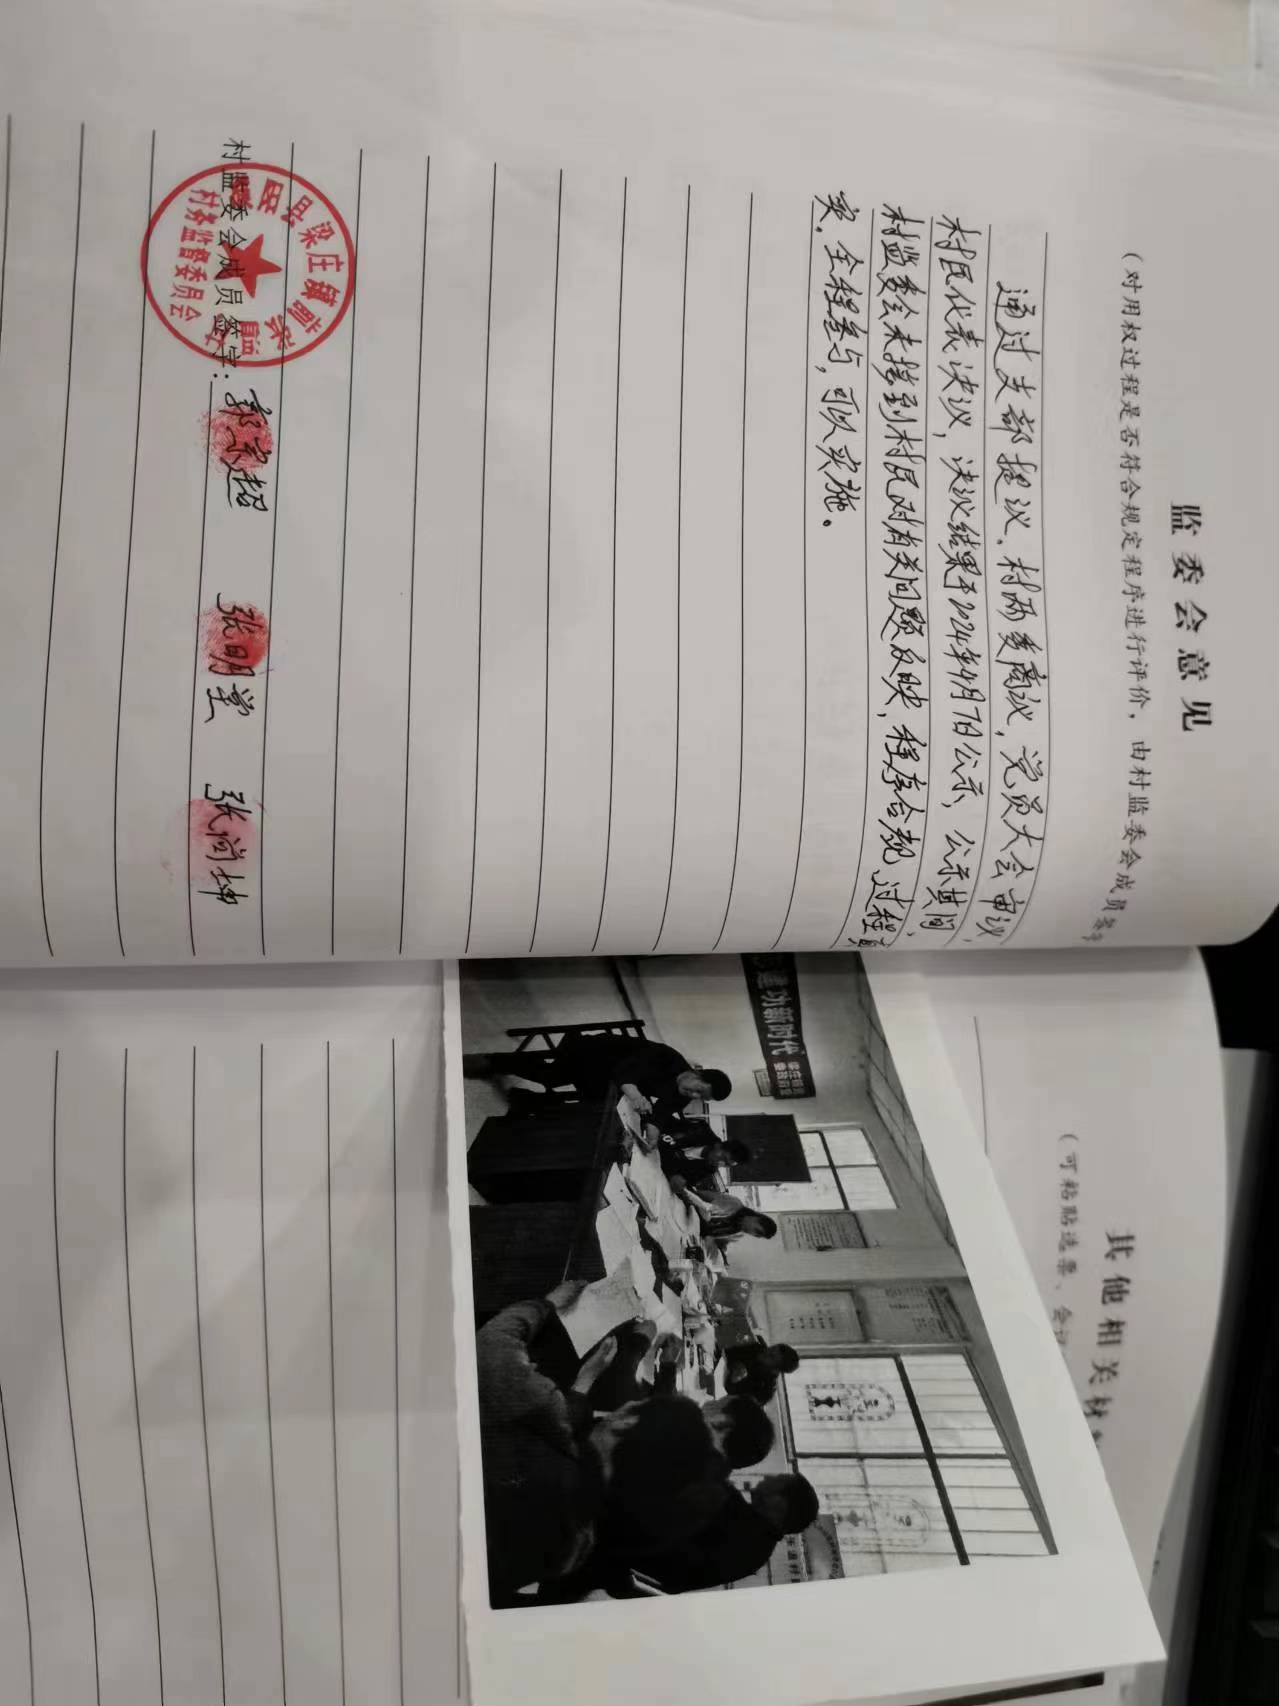 监委会意见
(对用权过程是否符合规定程序进行评价，由村监委会成员签字
通过支部提议，村两委商议，党员大会审议，
村民代表决议，决议结果于2024年4月7日公示，公示其间，
村监委会未接到村民对有关问题反映，程序合规，过程真
实。全程参与，可以实施。
村监委会成员签字：郭宗超 张明堂 张尚坤
县梁庄镇
村务监督委员会
其他相关材
(可粘贴选票、会议
建功新时代